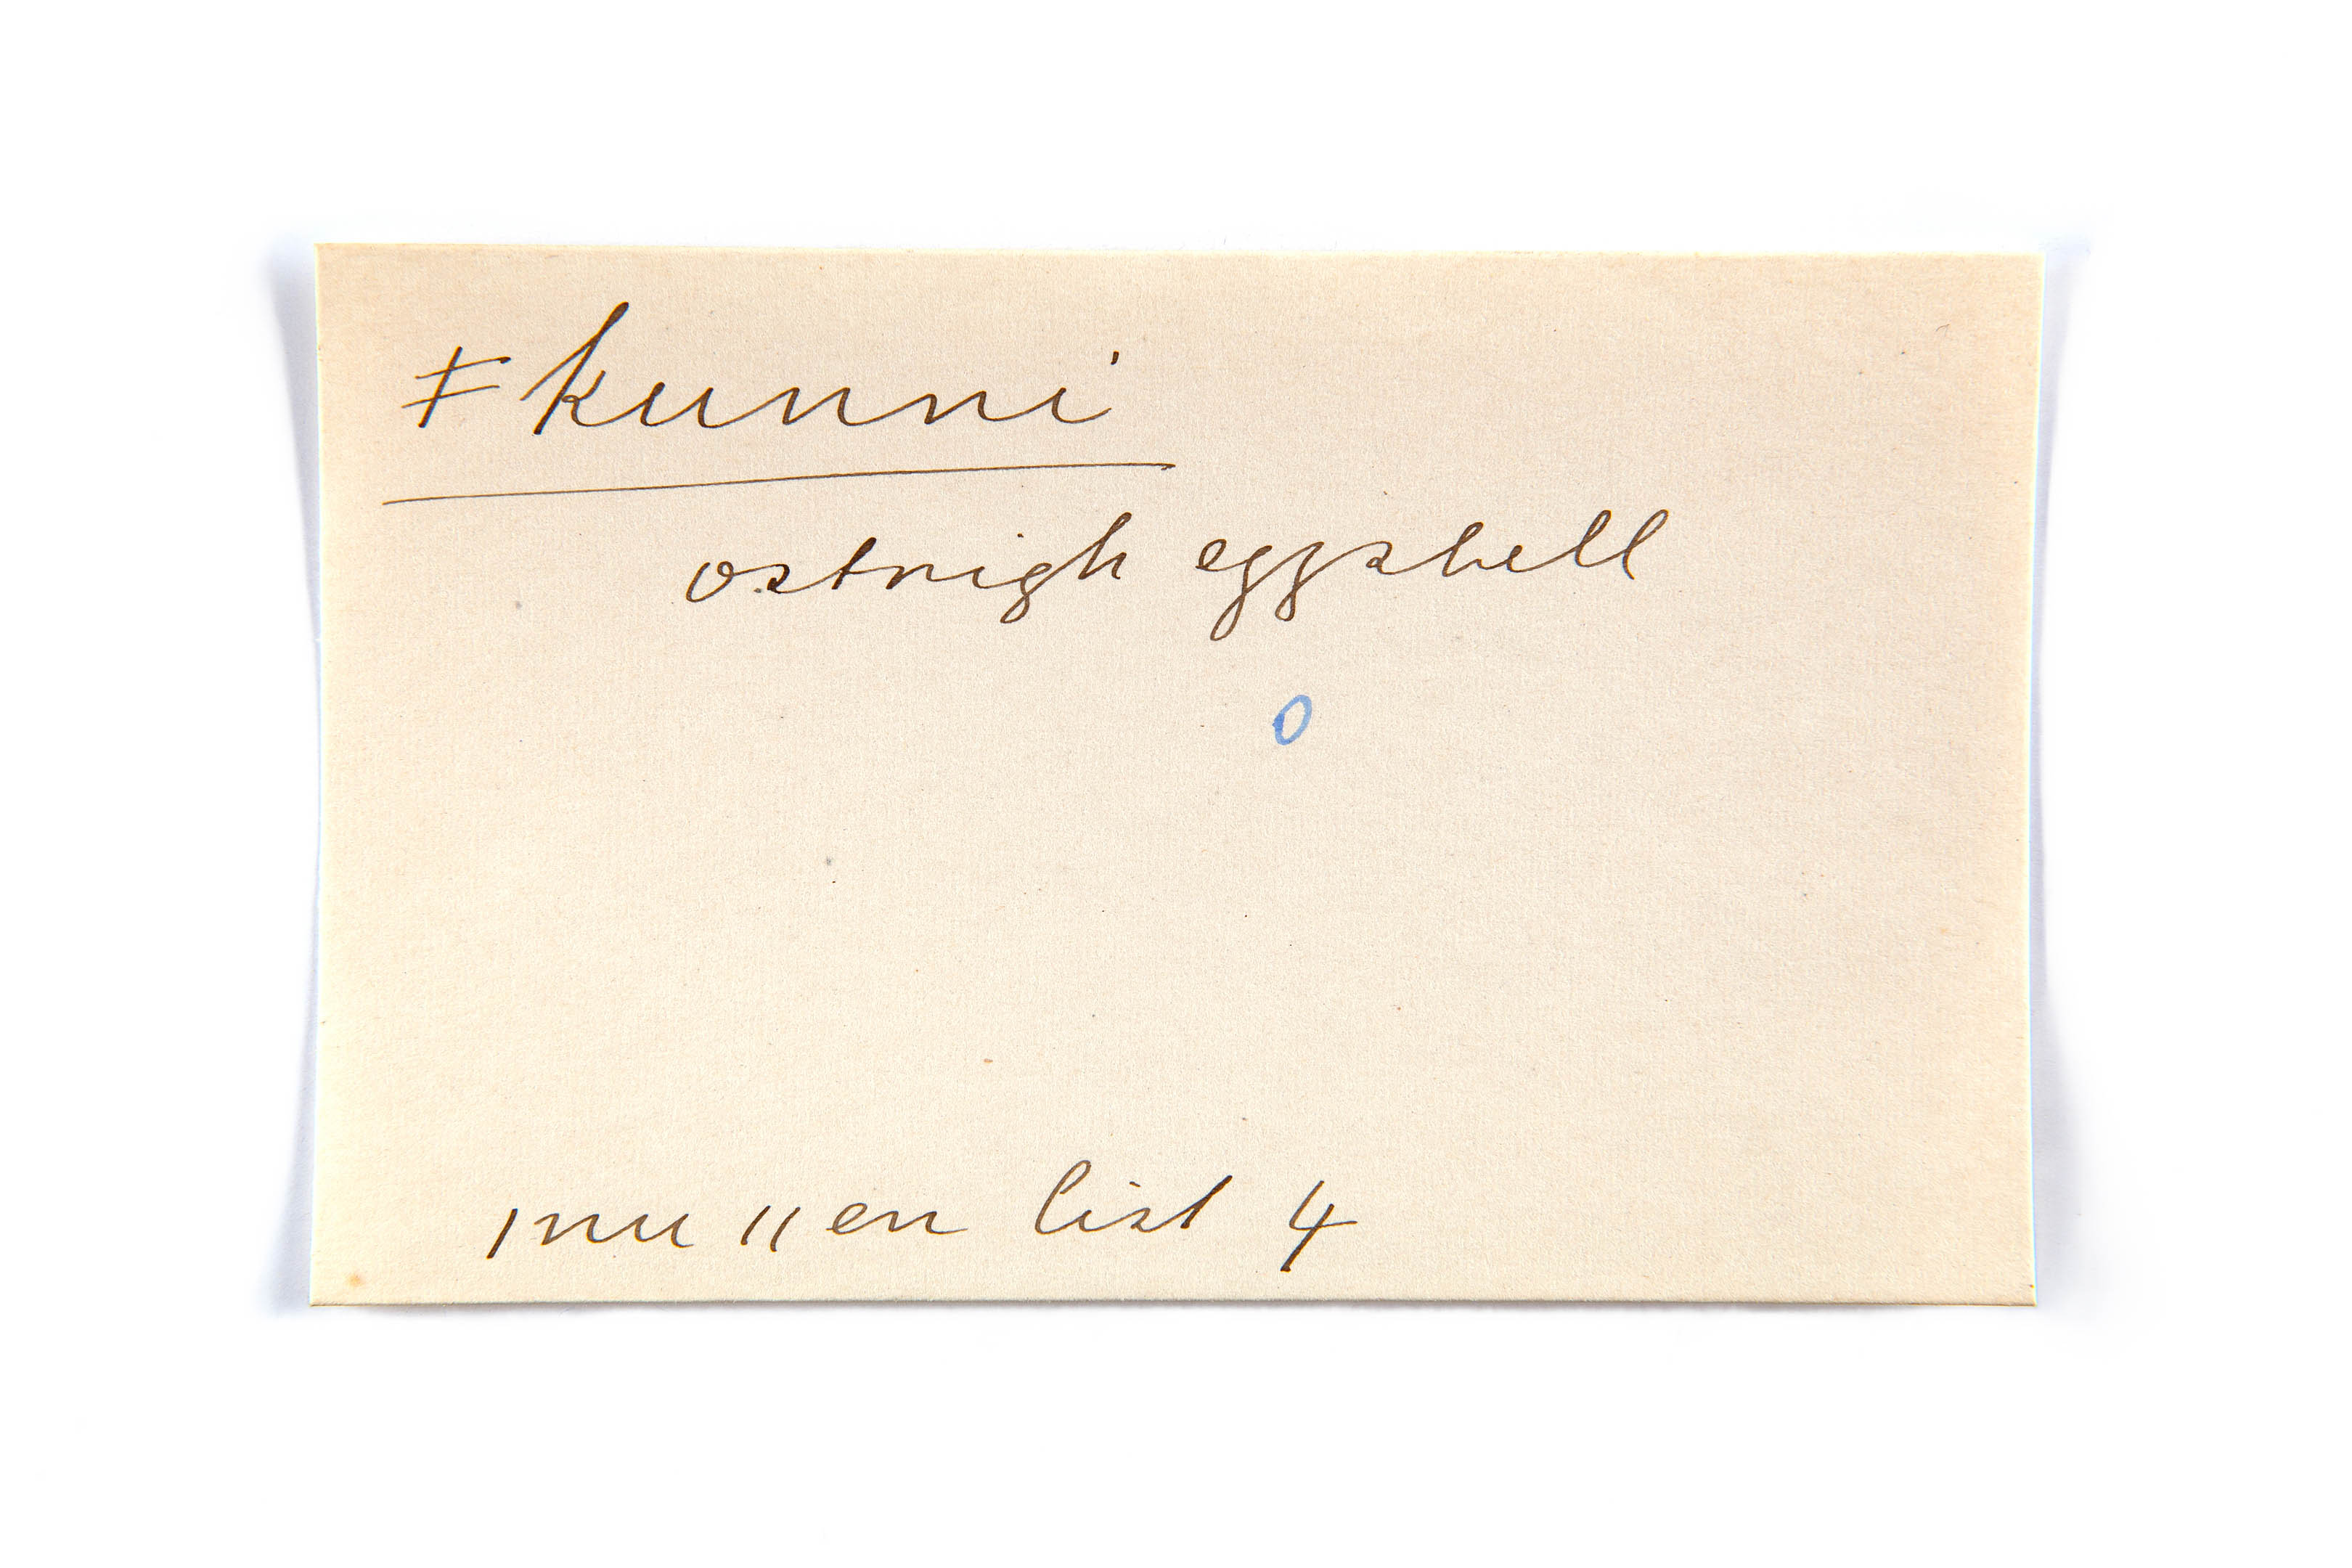 ǂkunni
ostrigh eggshell
0
ǀnu ǁen list 4